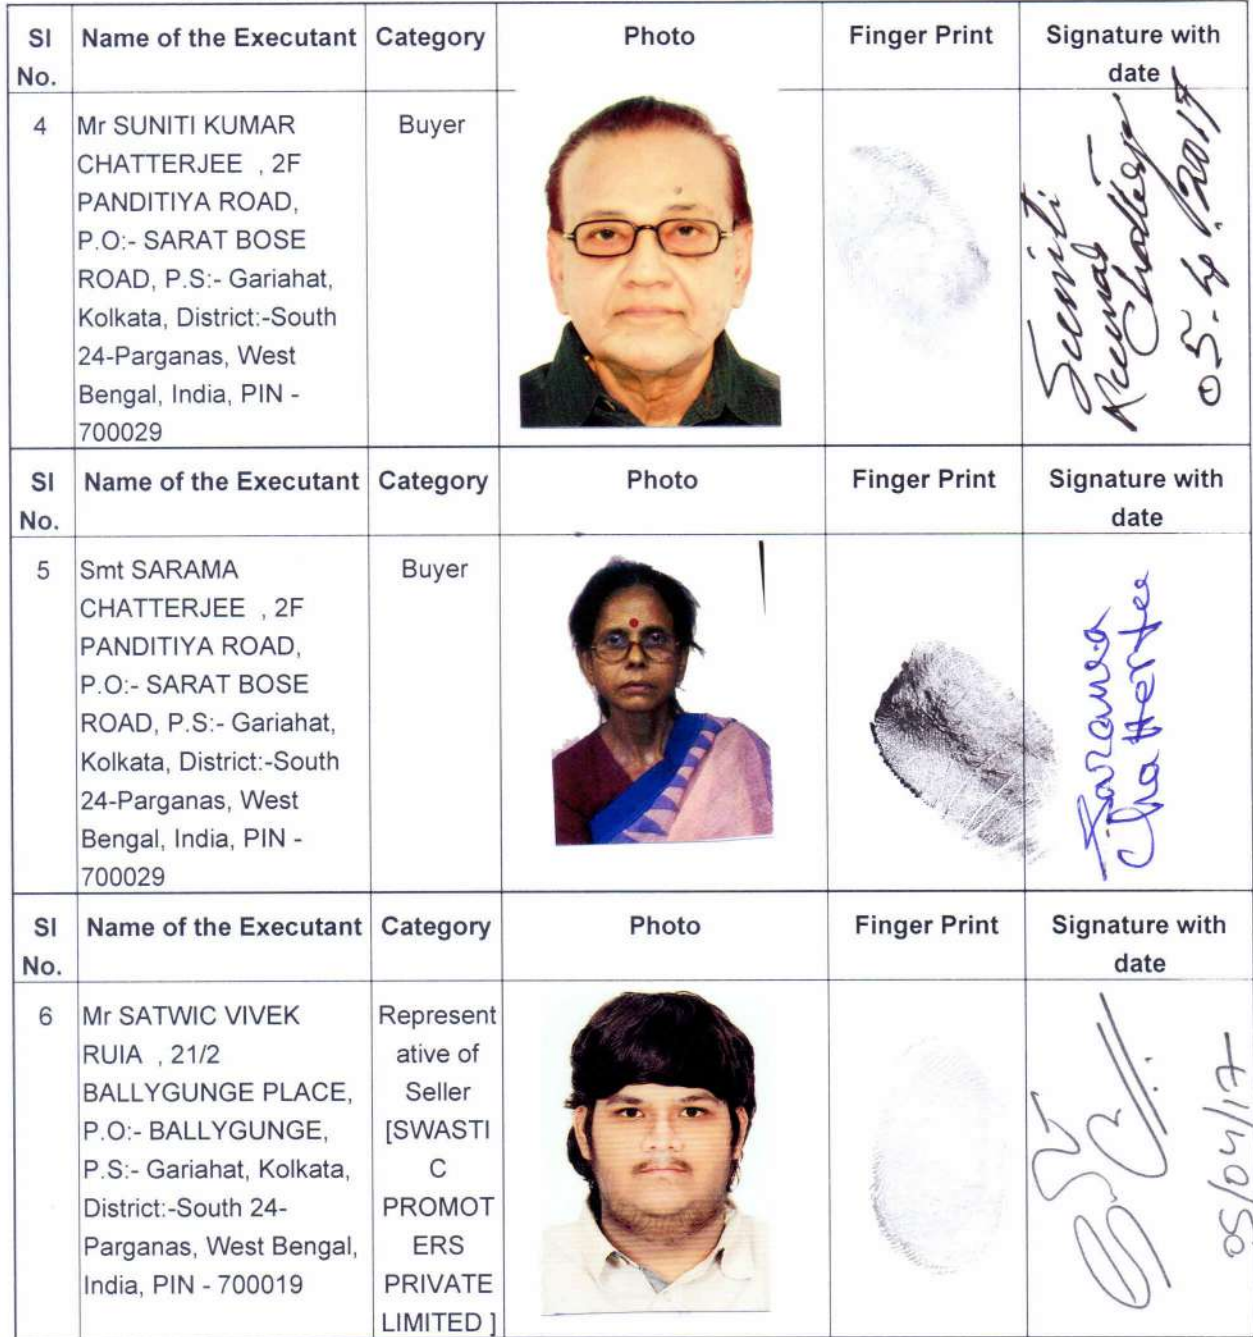 Sl No. Name of the Executant Category Photo Finger Print Signature with date
4 Mr SUNITI KUMAR Buyer
CHATTERJEE , 2F
PANDITIYA ROAD,
P.O:- SARAT BOSE
ROAD, P.S:- Gariahat,
Kolkata, District:-South
24-Parganas, West
Bengal, India, PIN -
700029
Suniti
Kumar
Chatterjee
Sl No. Name of the Executant Category Photo Finger Print Signature with date
5 Smt SARAMA Buyer
CHATTERJEE , 2F
PANDITIYA ROAD,
P.O:- SARAT BOSE
ROAD, P.S:- Gariahat,
Kolkata, District:-South
24-Parganas, West
Bengal, India, PIN -
700029
Sarama
Chatterjee
Sl No. Name of the Executant Category Photo Finger Print Signature with date
6 Mr SATWIC VIVEK
RUIA , 21/2
BALLYGUNGE PLACE,
P.O:- BALLYGUNGE,
P.S:- Gariahat, Kolkata,
District:-South 24-
Parganas, West Bengal,
India, PIN - 700019
Represent
ative of
Seller
[SWASTI
C
PROMOT
ERS
PRIVATE
LIMITED ]
05/04/17